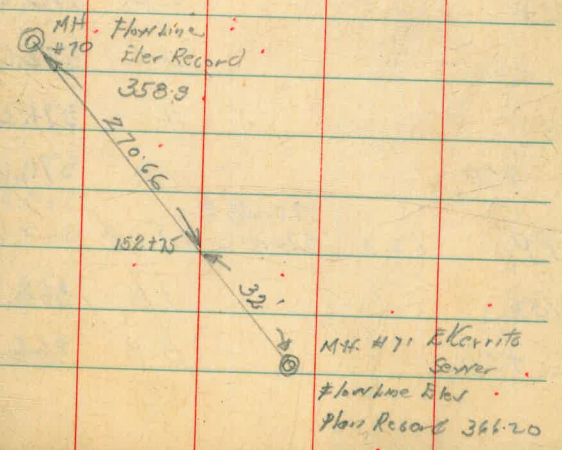 MH Flowline
#70 Elev Record
358.9
270.66
152+75
32'
MH. #71 Sewer
Flowline Elev
Plan Record 366.20